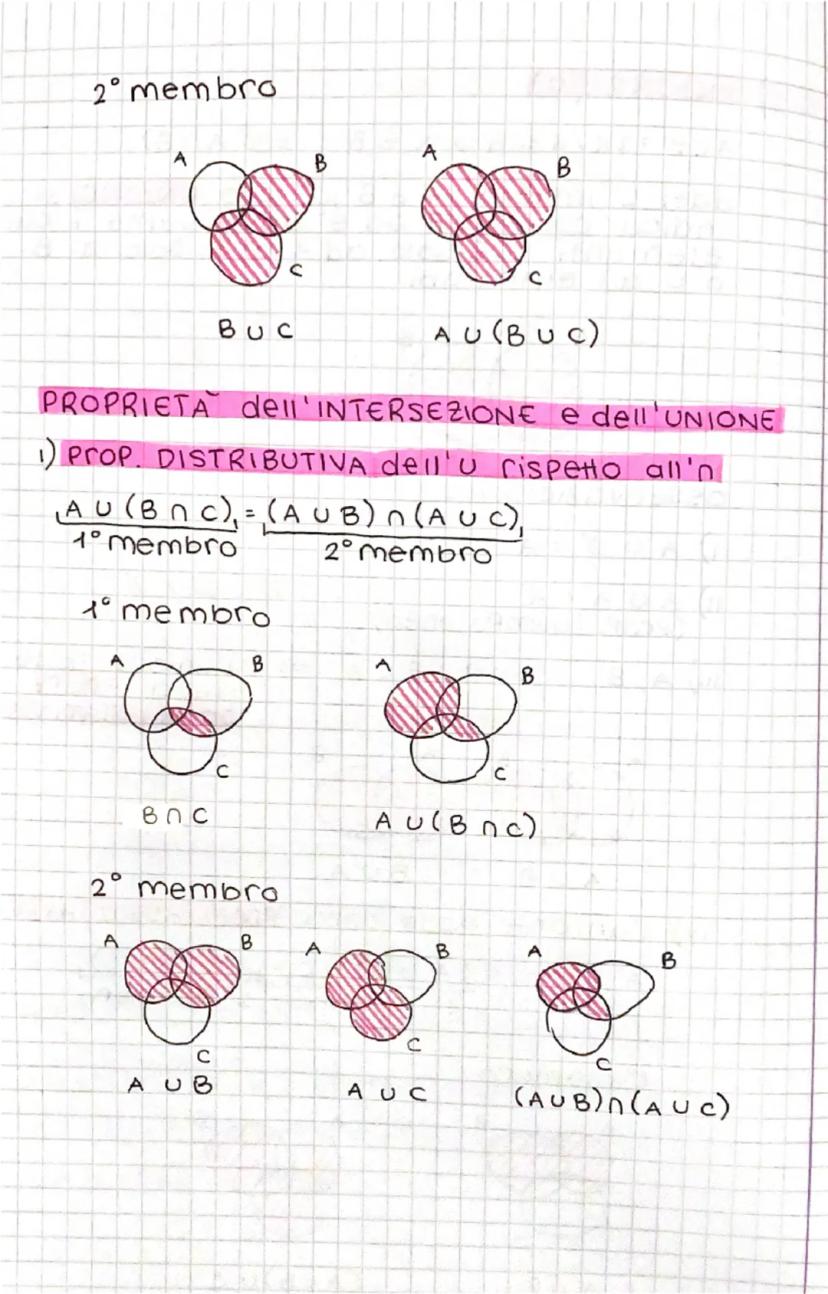 2° membro
A B C
A B C
B ∪ C A ∪ (B ∪ C)
PROPRIETÀ dell'INTERSEZIONE e dell'UNIONE
1) PROP. DISTRIBUTIVA dell'∪ rispetto all'∩
A ∪ (B ∩ C) = (A ∪ B) ∩ (A ∪ C)
1° membro 2° membro
1° membro
A B C
A B C
B ∩ C A ∪ (B ∩ C)
2° membro
A B C
A B C
A B C
A ∪ B A ∪ C (A ∪ B) ∩ (A ∪ C)